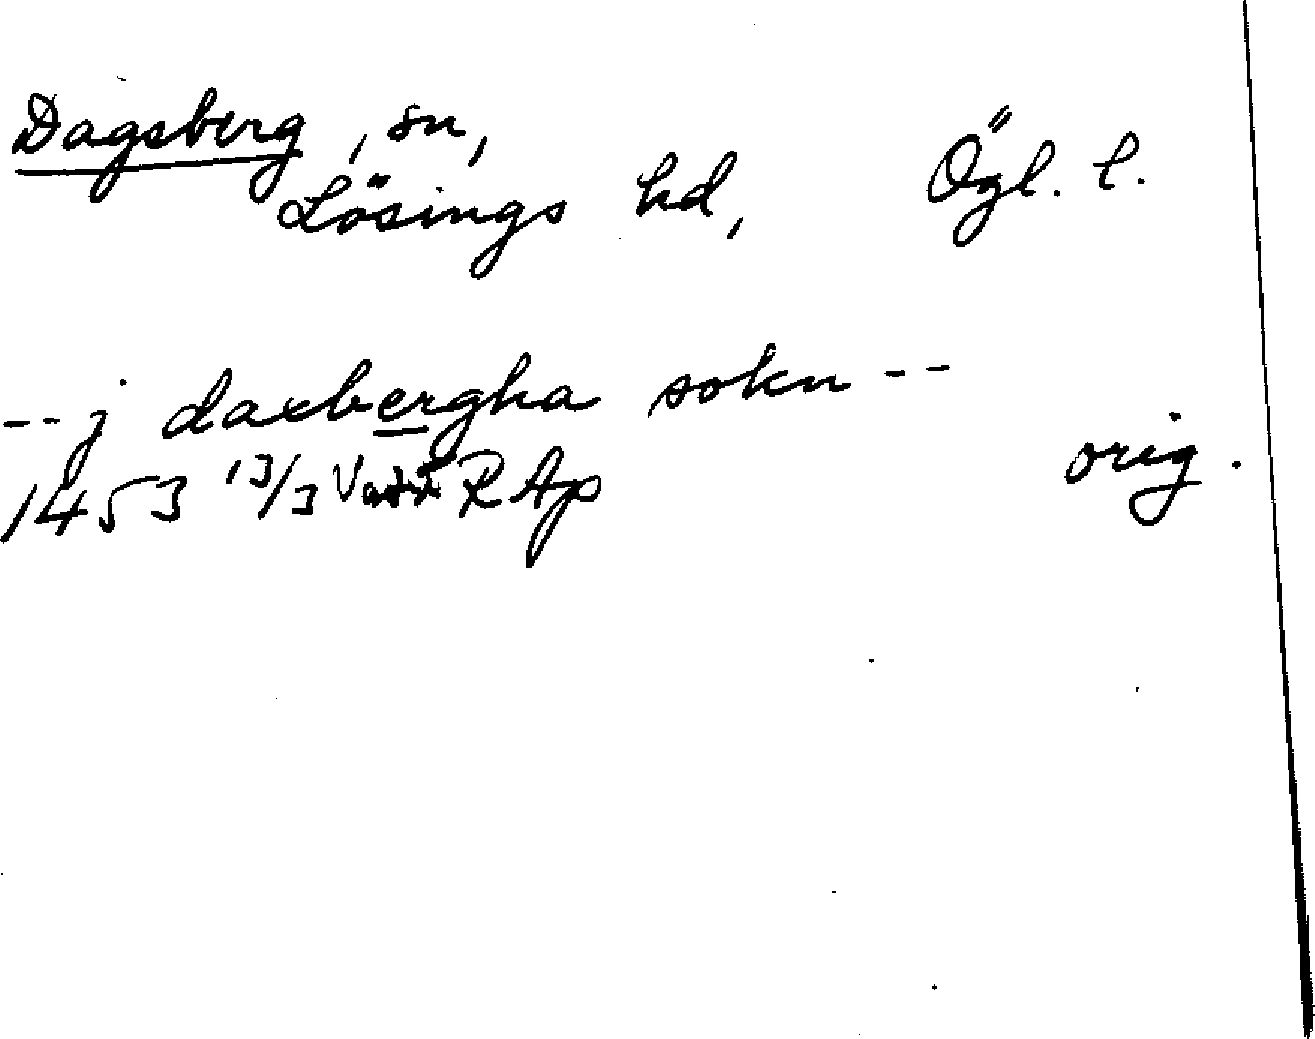 Dagsberg, sn,
Lösings hd, Ögl. l.
-- j daxbergha sokn --
1453 13/3 Vadst RAp orig.